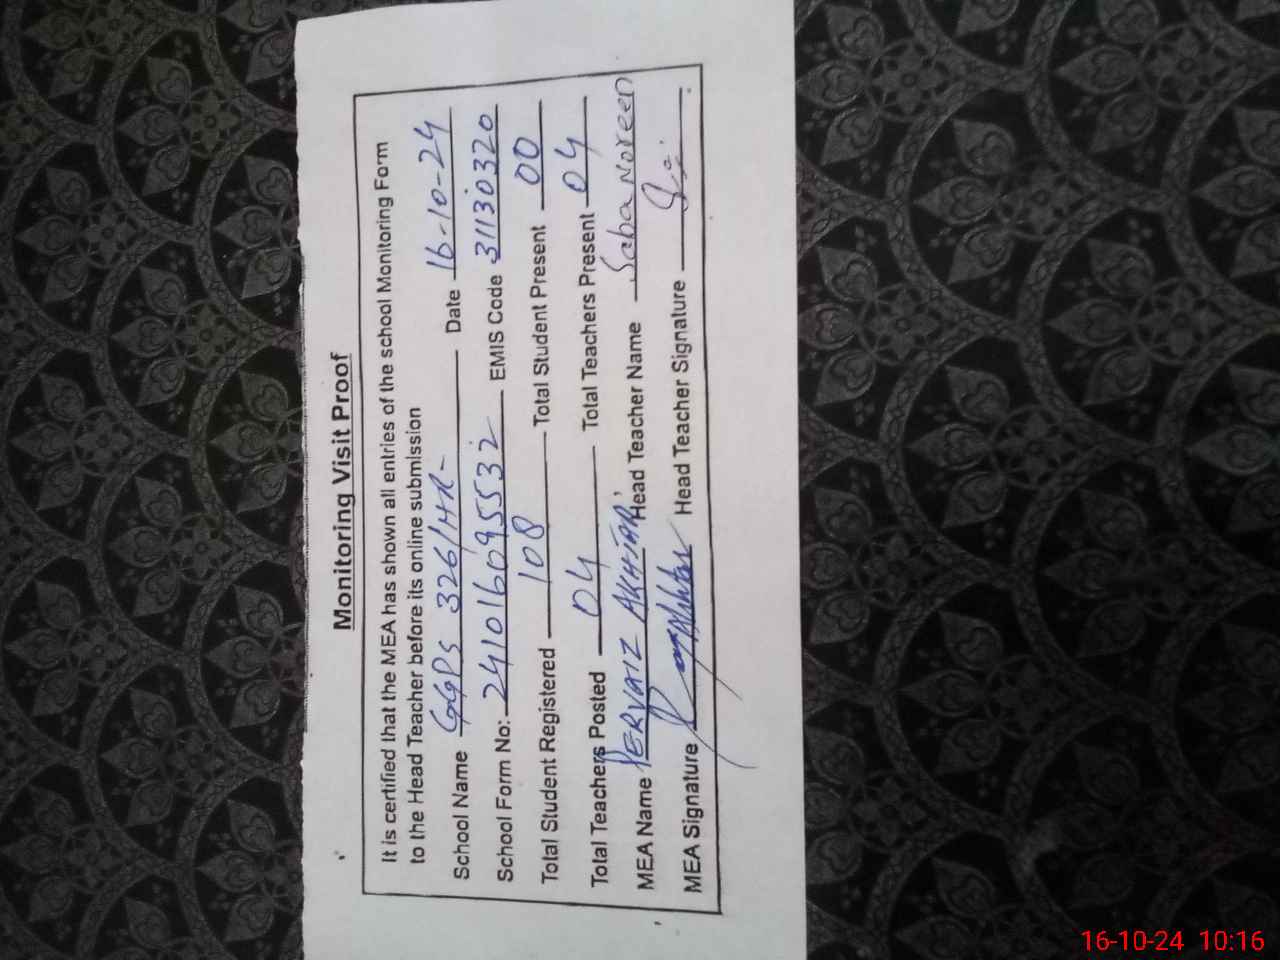 Monitoring Visit Proof
It is certified that the MEA has shown all entries of the school Monitoring Form
to the Head Teacher before its online submission
School Name GGPS 326/HR- Date 16-10-24
School Form No: 241016095532 EMIS Code 31130320
Total Student Registered 108 Total Student Present 00
Total Teachers Posted 04 Total Teachers Present 04
MEA Name PERVAIZ AKHTAR Head Teacher Name Saba Noreen
MEA Signature Head Teacher Signature
16-10-24 10:16